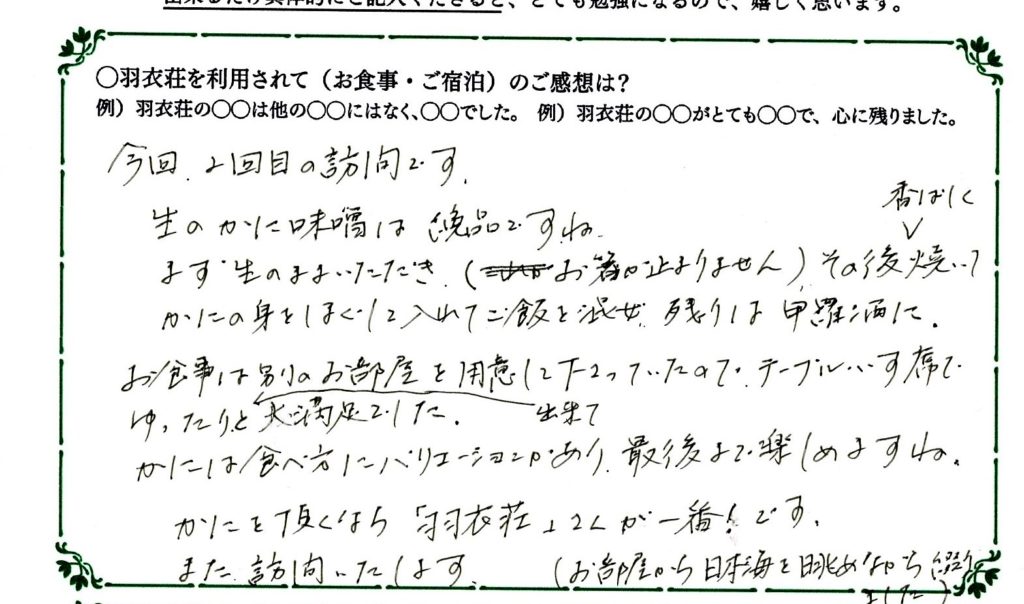 出来るだけ具体的にご記入くださると、とても勉強になるので、嬉しく思います。
〇羽衣荘を利用されて（お食事・ご宿泊）のご感想は?
例）羽衣荘の〇〇は他の〇〇にはなく、〇〇でした。 例）羽衣荘の〇〇がとても〇〇で、心に残りました。
今回、2回目の訪問です。
香ばしく
生のかに味噌は絶品ですね。
まず生のままいただき、(お箸が止まりません)その後焼いて
かにの身をほぐして入れてご飯を混ぜ、残りは甲羅酒に。
お食事は別のお部屋を用意して下さっていたので、テーブルいす席で
ゆったりと大満足でした。 出来て
かにには食べ方にバリエーションがあり、最後まで楽しめますね。
かにを頂くなら「羽衣荘」さんが一番!です。
また訪問いたします。 (お部屋から日本海を眺めながら綴り
ました)